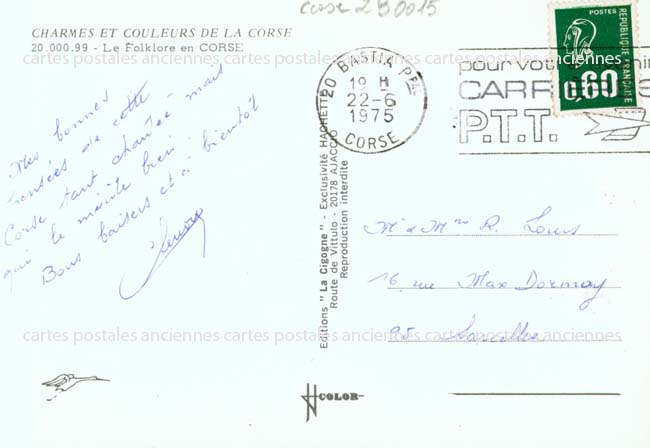 Corse 2B0015
CHARMES ET COULEURS DE LA CORSE
20.000.99 - Le Folklore en CORSE
Mes bonnes
pensées de cette
Corse tant chantée mais
qui le mérite bien.
Bons baisers et à bientôt
20 BASTIA PPAL
19 H
22-6
1975
CORSE
pour votre
CARR
P.T.T.
POSTES
0,60
REPUBLIQUE FRANÇAISE
Editions "La Cigogne" - Exclusivité HACHETTE
Route de Vittulo - 20178 AJACCIO
Reproduction interdite
Mr & Mme R. Louis
16 rue Max Dormoy
95 Sarcelles
cartes postales anciennes cartes postales anciennes cartes postales anciennes
COLOR